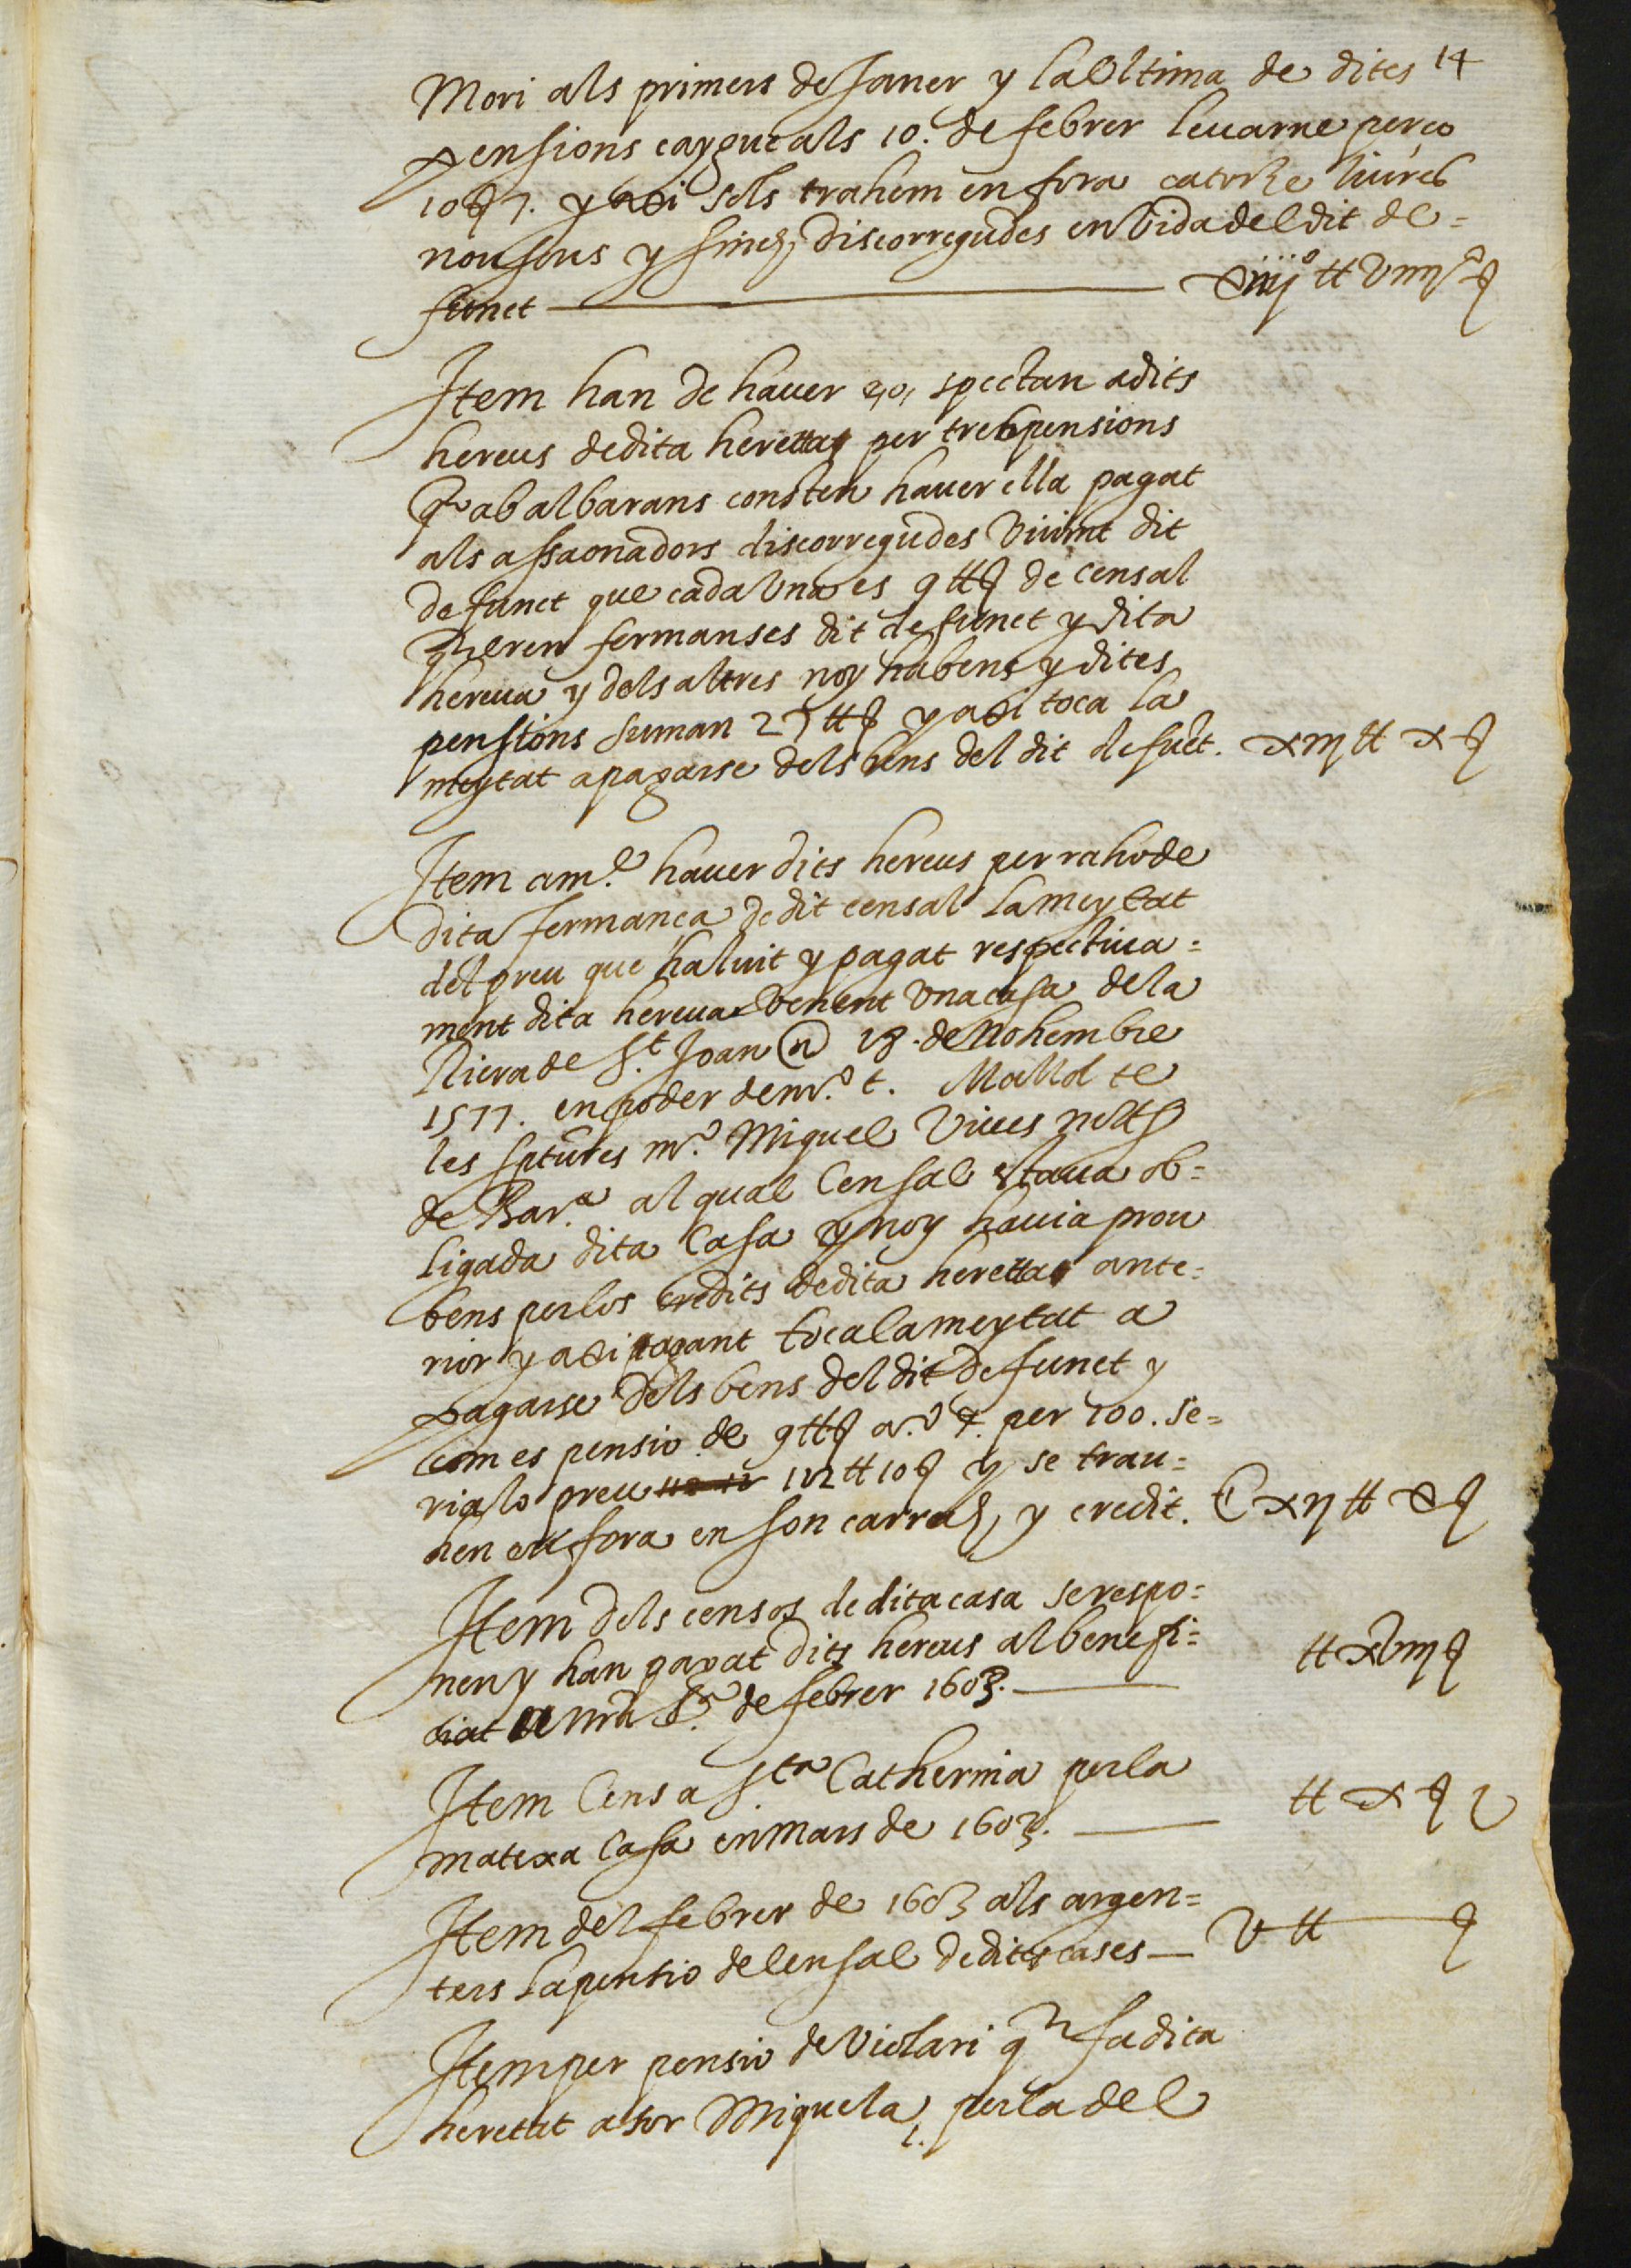 14
Mori als primers de Janer y la Ultima de dites
pensions caygue als 10. de febrer levarne perço
10 ß 7. y axi sols trahem en fora catorze liures
nou sous y sinch discorregudes en vida del dit de=
funct — xiiij° ℔ viiij ß
Item han de hauer spectan a dits
hereus de dita herettat per tres pensions
q ab albarans consten hauer ella pagat
als assaonadors discorregudes Vivint dit
defunct que cada Una es 9 ℔ ß de censal
q heren fermanses dit defunct y dita
hereua y dels altres noy ha bens y dites
pensions suman 27 ℔ ß y axi toca la
meytat a pagarse dels bens del dit defuct. xiij ℔ x ß
Item am.e hauer dits hereus per raho de
dita fermança de dit censal La meytat
del preu que ha luit y pagat respectiua=
ment dita hereua Venent Una casa de la
Riera de St. Joan a 18. de Nohembre
1577. en poder de mr.º t. Mallol te
les sptures mr.º Miquel Viues nott
de Bar.ª al qual Censal estaua ob=
ligada dita Casa y noy hauia prou
bens per los credits de dita herettat ante=
rior y axi pagant toca la meytat a
pagarse dels bens del dit defunct y
com es pensio de 9 ℔ ß a.º per 100. se=
ria lo preu 112 ℔ 10 ß y se trau=
hen en fora en son carrech y credit. C xij ℔ x ß
Item dels censos de dita casa se respo=
nen y han pagat dits hereus al benefi=
ciat nra Sª. de febrer 1603. — ℔ xviij ß
Item Cens a Sta Catherina per la
matexa Casa en Mars de 1603. — ℔ x ß
Item del febrer de 1603 als argen=
ters La pensio del Censal de dites cases — v ℔ — ß
Item per pensio de Violari q fa dita
herettat a sor Miquela, per la del